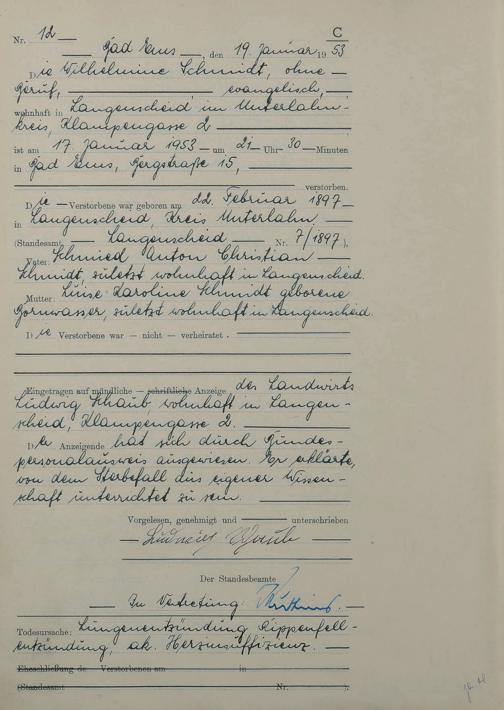 C
Nr. 12
Bad Ems, den 19. Januar 1953
Die Wilhelmine Schmidt, ohne
Beruf, evangelisch,
wohnhaft in Langenscheid im Unterlahn-
kreis, Klampengasse 2
ist am 17. Januar 1953 um 21 Uhr 30 Minuten
in Bad Ems, Bergstraße 15,
verstorben.
Die Verstorbene war geboren am 22. Februar 1897
in Langenscheid, Kreis Unterlahn
(Standesamt Langenscheid Nr. 7/1897).
Vater: Schmied Anton Christian
Schmidt, zuletzt wohnhaft in Langenscheid.
Mutter: Luise Karoline Schmidt geborene
Bornwasser, zuletzt wohnhaft in Langenscheid.
Die Verstorbene war — nicht — verheiratet.
Eingetragen auf mündliche — schriftliche Anzeige des Landwirts
Ludwig Schaub, wohnhaft in Langen-
scheid, Klampengasse 2.
Der Anzeigende hat sich durch Bundes-
personalausweis ausgewiesen. Er erklärte,
von dem Sterbefall aus eigener Wissen-
schaft unterrichtet zu sein.
Vorgelesen, genehmigt und unterschrieben
Ludwig Schaub
Der Standesbeamte
In Vertretung:
Todesursache: Lungenentzündung Rippenfell-
entzündung, ak. Herzinsuffizienz.
Eheschließung de Verstorbenen am in
(Standesamt Nr. ).